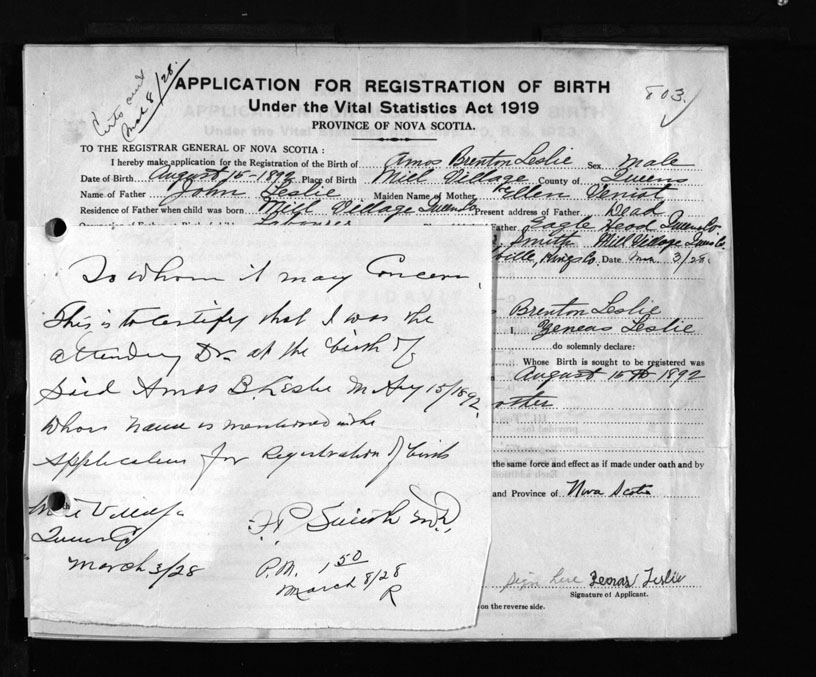 Mar 8/28.
APPLICATION FOR REGISTRATION OF BIRTH
803.
Under the Vital Statistics Act 1919
PROVINCE OF NOVA SCOTIA.
TO THE REGISTRAR GENERAL OF NOVA SCOTIA :
I hereby make application for the Registration of the Birth of Amos Brenton Leslie Sex Male
Date of Birth August 15-1892 Place of Birth Mill Village County of Queens
Name of Father John Leslie Maiden Name of Mother Ellen Veniot
Residence of Father when child was born Mill Village Queens Co Present address of Father Dead
Labourer Father Eagle Head Queens Co
Smith Mill Village Queens Co.
ville, Kings Co. Date Mar. 3/28.
Brenton Leslie
I, Zeneas Leslie
do solemnly declare:
Whose Birth is sought to be registered was
August 15th 1892
other
the same force and effect as if made under oath and by
and Province of Nova Scotia
sign here Zeneas Leslie
Signature of Applicant.
on the reverse side.
To whom it may Concern.
This is to certify that I was the
attending Dr. at the birth of
Said Amos B. Leslie M Aug 15/1892
whose name is mentioned in the
application for Registration of birth
Mill Village
Queens Co
F P Smith M.D.
March 3/28
P.M. 1 50
March 8/28
R